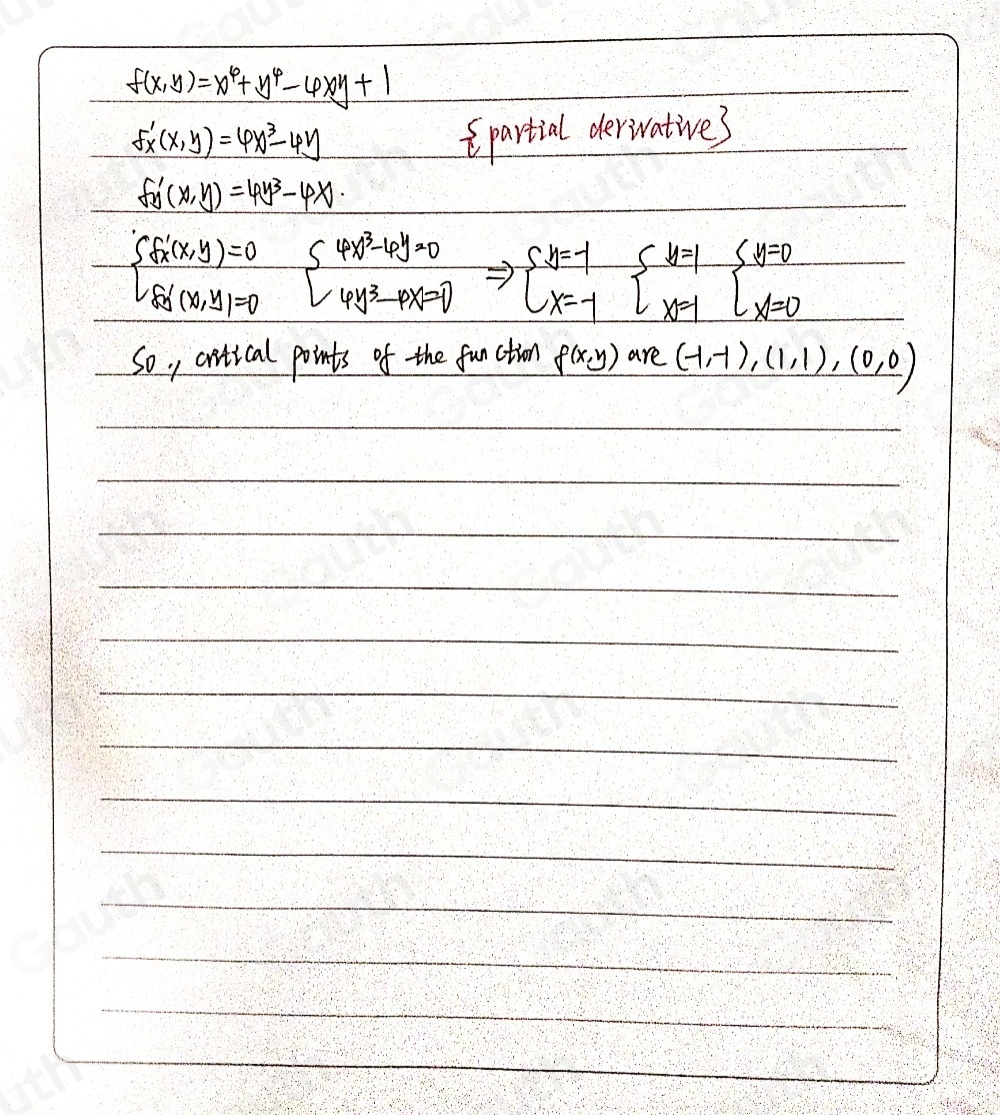 f(x,y)=x⁴+y⁴-4xy+1
f'x(x,y)=4x³-4y {partial derivative}
f'y(x,y)=4y³-4x.
{f'x(x,y)=0 {4x³-4y=0 ⇒ {y=-1 {y=1 {y=0
f'y(x,y)=0 4y³-4x=0 x=-1 x=1 x=0
So, critical points of the function f(x,y) are (-1,-1), (1,1), (0,0)
Gauth